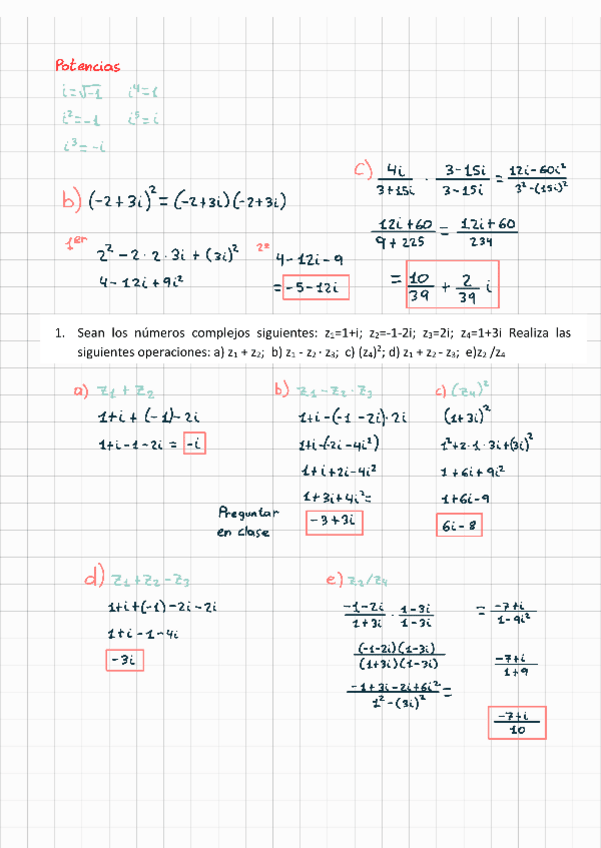 Potencias
i=√-1 i⁴=1
i²=-1 i⁵=i
i³=-i
b) (-2+3i)²=(-2+3i)(-2+3i)
1er 2²-2·2·3i+(3i)²
4-12i+9i²
2º 4-12i-9
=-5-12i
c) 4i/3+15i · 3-15i/3-15i = 12i-60i²/3²-(15i)²
12i+60/9+225 = 12i+60/234
= 10/39 + 2/39 i
1. Sean los números complejos siguientes: z₁=1+i; z₂=-1-2i; z₃=2i; z₄=1+3i Realiza las
siguientes operaciones: a) z₁ + z₂; b) z₁ - z₂ · z₃; c) (z₄)²; d) z₁ + z₂ - z₃; e)z₂ /z₄
a) z₁+z₂
1+i+(-1)-2i
1+i-1-2i = -i
b) z₁-z₂·z₃
1+i-(-1-2i)·2i
1+i-(-2i-4i²)
1+i+2i-4i²
1+3i+4i²=
-3+3i
Preguntar
en clase
c) (z₄)²
(1+3i)²
1²+2·1·3i+(3i)²
1+6i+9i²
1+6i-9
6i-8
d) z₁+z₂-z₃
1+i+(-1)-2i-2i
1+i-1-4i
-3i
e) z₂/z₄
-1-2i/1+3i · 1-3i/1-3i
(-1-2i)(1-3i)/(1+3i)(1-3i)
-1+3i-2i+6i²/1²-(3i)² =
= -7+i/1-9i²
-7+i/1+9
-7+i/10